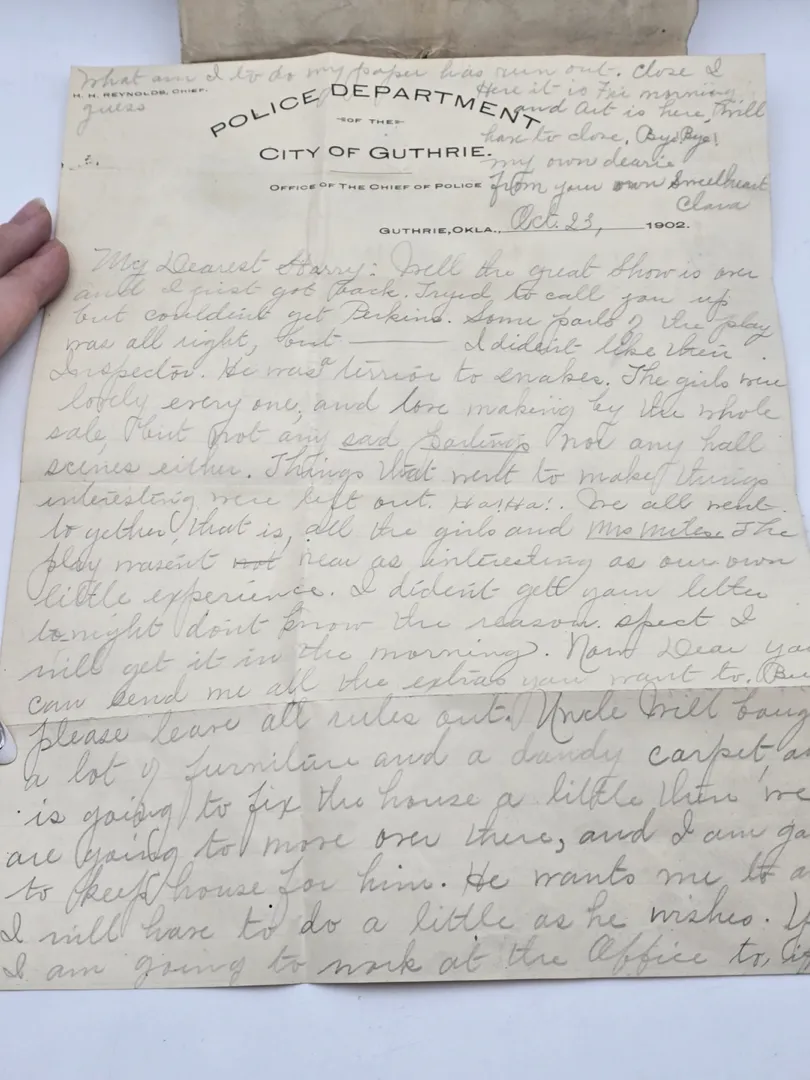 What am I to do my paper has run out. Close I
guess
Here it is Fri morning
and Art is here, Will
have to close, Bye Bye!
my own dearie
from your own Sweetheart
Clara
H. H. REYNOLDS, CHIEF.
POLICE DEPARTMENT
OF THE
CITY OF GUTHRIE.
OFFICE OF THE CHIEF OF POLICE
GUTHRIE, OKLA., Oct. 23, 1902.
My Dearest Harry: Well the great Show is over
and I just got back. Tryed to call you up
but couldent get Perkins. Some parts of the play
was all right, but ——— I dident like their
Inspector. He was a terrior to snakes. The girls were
lovely every one, and love making by the whole
sale, but not any sad partings nor any hall
scenes either. Things that went to make things
interesting were left out. Ha! Ha!. We all went
to gether, that is, all the girls and Mrs Miles. The
play wasent not near as interesting as our own
little experience. I dident gett your letter
to-night dont know the reason. spect I
will get it in the morning. Now Dear you
can send me all the extras you want to. Bu
please leave all rules out. Uncle Will boug
a lot of furniture and a dandy carpet, a
is going to fix the house a little then we
are going to move over there, and I am go
to keep house for him. He wants me to a
I will have to do a little as he wishes.
I am going to work at the Office to, if